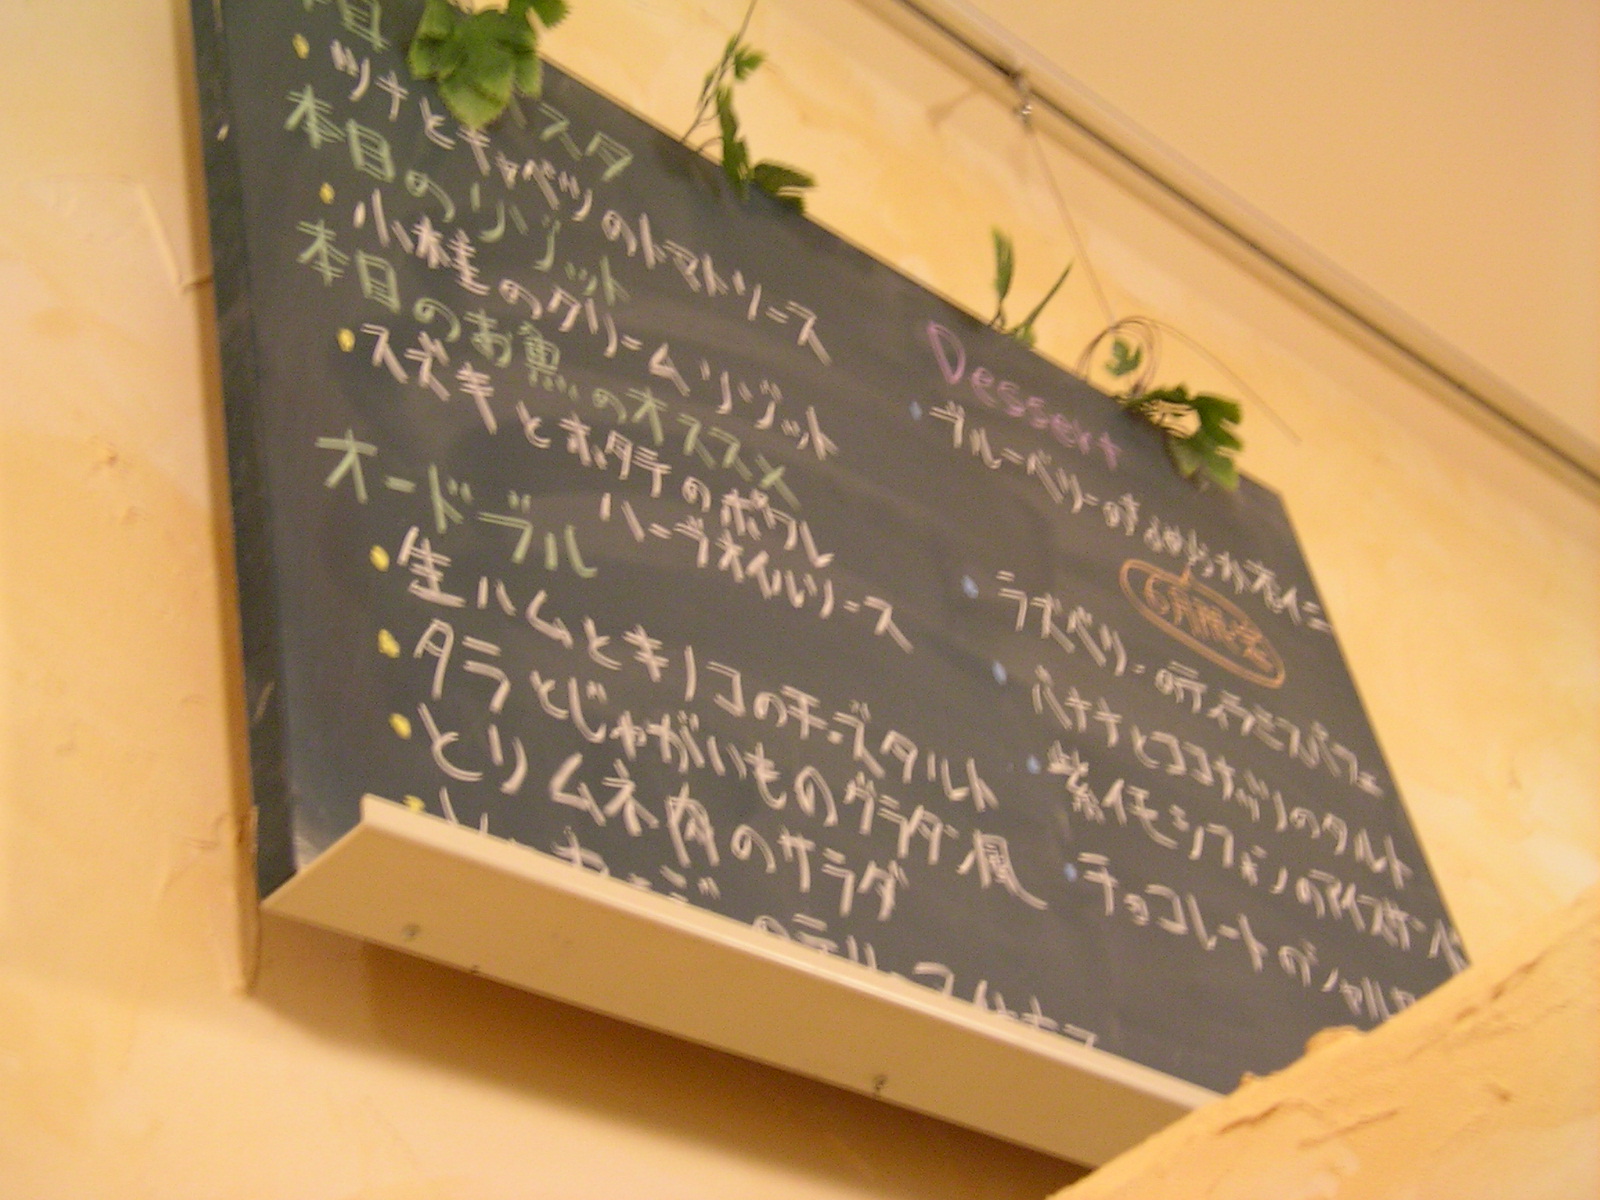 スタ
ツナとキャベツのトマトソース
本日のリゾット
小柱のクリームリゾット
本日のお魚のオススメ
スズキとホタテのポワレ
ハーブオイルソース
オードブル
生ハムとキノコのチーズタルト
タラとじゃがいものグラタン風
とりムネ肉のサラダ
Dessert
ブルーベリーの
6月限定
ラズベリーのティラミスパフェ
バナナとココナッツのタルト
紫イモシフォンのアイスケーキ
チョコレートの